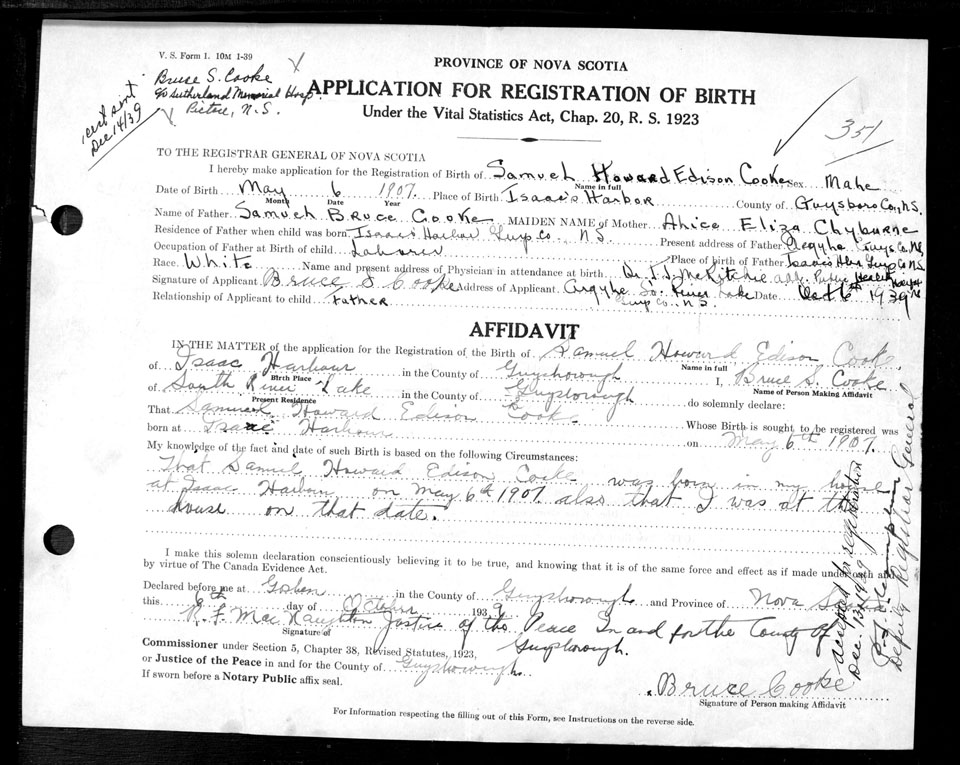 V. S. Form 1. 10M 1-39
Bruce S. Cooke
c/o Sutherland Memorial Hosp.
Pictou, N.S.
cert sent
Dec 14/39
PROVINCE OF NOVA SCOTIA
APPLICATION FOR REGISTRATION OF BIRTH
Under the Vital Statistics Act, Chap. 20, R. S. 1923
351
TO THE REGISTRAR GENERAL OF NOVA SCOTIA
I hereby make application for the Registration of Birth of Samuel Howard Edison Cooke Sex Male
Name in full
Date of Birth May 6 1907. Place of Birth Isaac's Harbor County of Guysboro Co., N.S.
Month Date Year
Name of Father Samuel Bruce Cooke MAIDEN NAME of Mother Alice Eliza Clyburne
Residence of Father when child was born Isaac's Harbor Guys Co., N.S. Present address of Father Argyle Guys Co. N.S.
Occupation of Father at Birth of child Laborer Place of Birth of Father Isaac's Hbr Guys Co N.S.
Race. White Name and present address of Physician in attendance at birth Dr. J.J. McRitchie
Signature of Applicant Bruce S Cooke Address of Applicant Argyle So. River Lake Date Oct 6th 1939
Guys Co., N.S.
Relationship of Applicant to child Father
AFFIDAVIT
IN THE MATTER of the application for the Registration of the Birth of Samuel Howard Edison Cooke
Name in full
of Isaac Harbour in the County of Guysborough I, Bruce S. Cooke
Birth Place Name of Person Making Affidavit
of South River Lake in the County of Guysborough do solemnly declare:
Present Residence
That Samuel Howard Edison Cooke Whose Birth is sought to be registered was
born at Isaac Harbour on May 6th 1907.
My knowledge of the fact and date of such Birth is based on the following Circumstances:
That Samuel Howard Edison Cooke was born in my house
at Isaac Harbour on May 6th 1907 also that I was at the
house on that date.
I make this solemn declaration conscientiously believing it to be true, and knowing that it is of the same force and effect as if made under oath and
by virtue of The Canada Evidence Act.
Declared before me at Goshen in the County of Guysborough and Province of Nova Scotia
this 6th day of October 1939
R. F. MacNaughton Justice of the Peace In and for the County of
Guysborough.
Signature of
Commissioner under Section 5, Chapter 38, Revised Statutes, 1923,
or Justice of the Peace in and for the County of Guysborough
If sworn before a Notary Public affix seal.
Bruce Cooke
Signature of Person making Affidavit
For Information respecting the filling out of this Form, see Instructions on the reverse side.
accepted for registration
Dec. 13th 1939
Deputy Registrar General